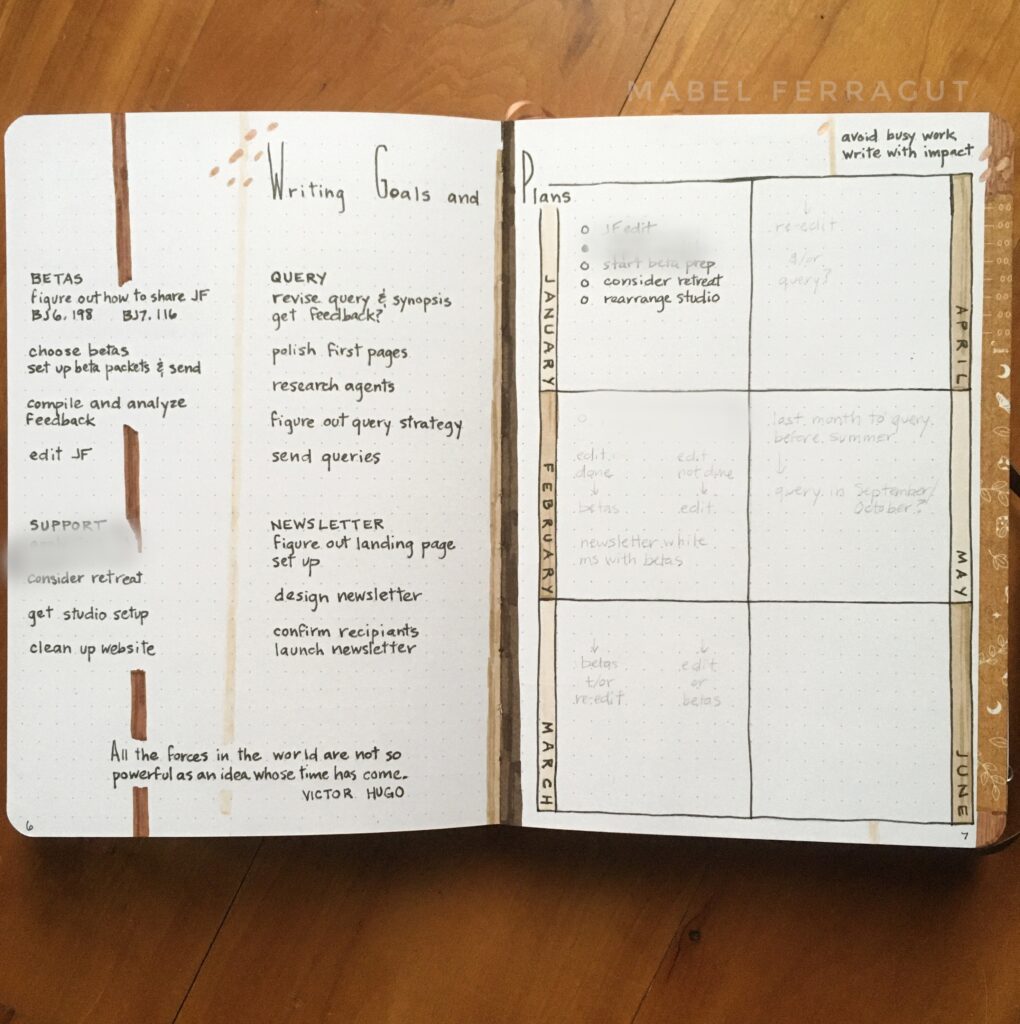 MABEL FERRAGUT
avoid busy work
write with impact
Writing Goals and Plans
BETAS
figure out how to share JF
BJ6.198 BJ7.116
choose betas
set up beta packets & send
compile and analyze
feedback
edit JF
SUPPORT
consider retreat
get studio setup
clean up website
QUERY
revise query & synopsis
get feedback?
polish first pages
research agents
figure out query strategy
send queries
NEWSLETTER
figure out landing page
set up
design newsletter
confirm recipiants
launch newsletter
All the forces in the world are not so
powerful as an idea whose time has come.
VICTOR HUGO
6
JANUARY
JF edit
start beta prep
consider retreat
rearrange studio
FEBRUARY
edit edit
done not done
betas edit
newsletter while
ms with betas
MARCH
betas edit
or
re-edit betas
APRIL
re-edit
&/or
query?
MAY
last month to query
before summer
query in September/
October?
JUNE
7